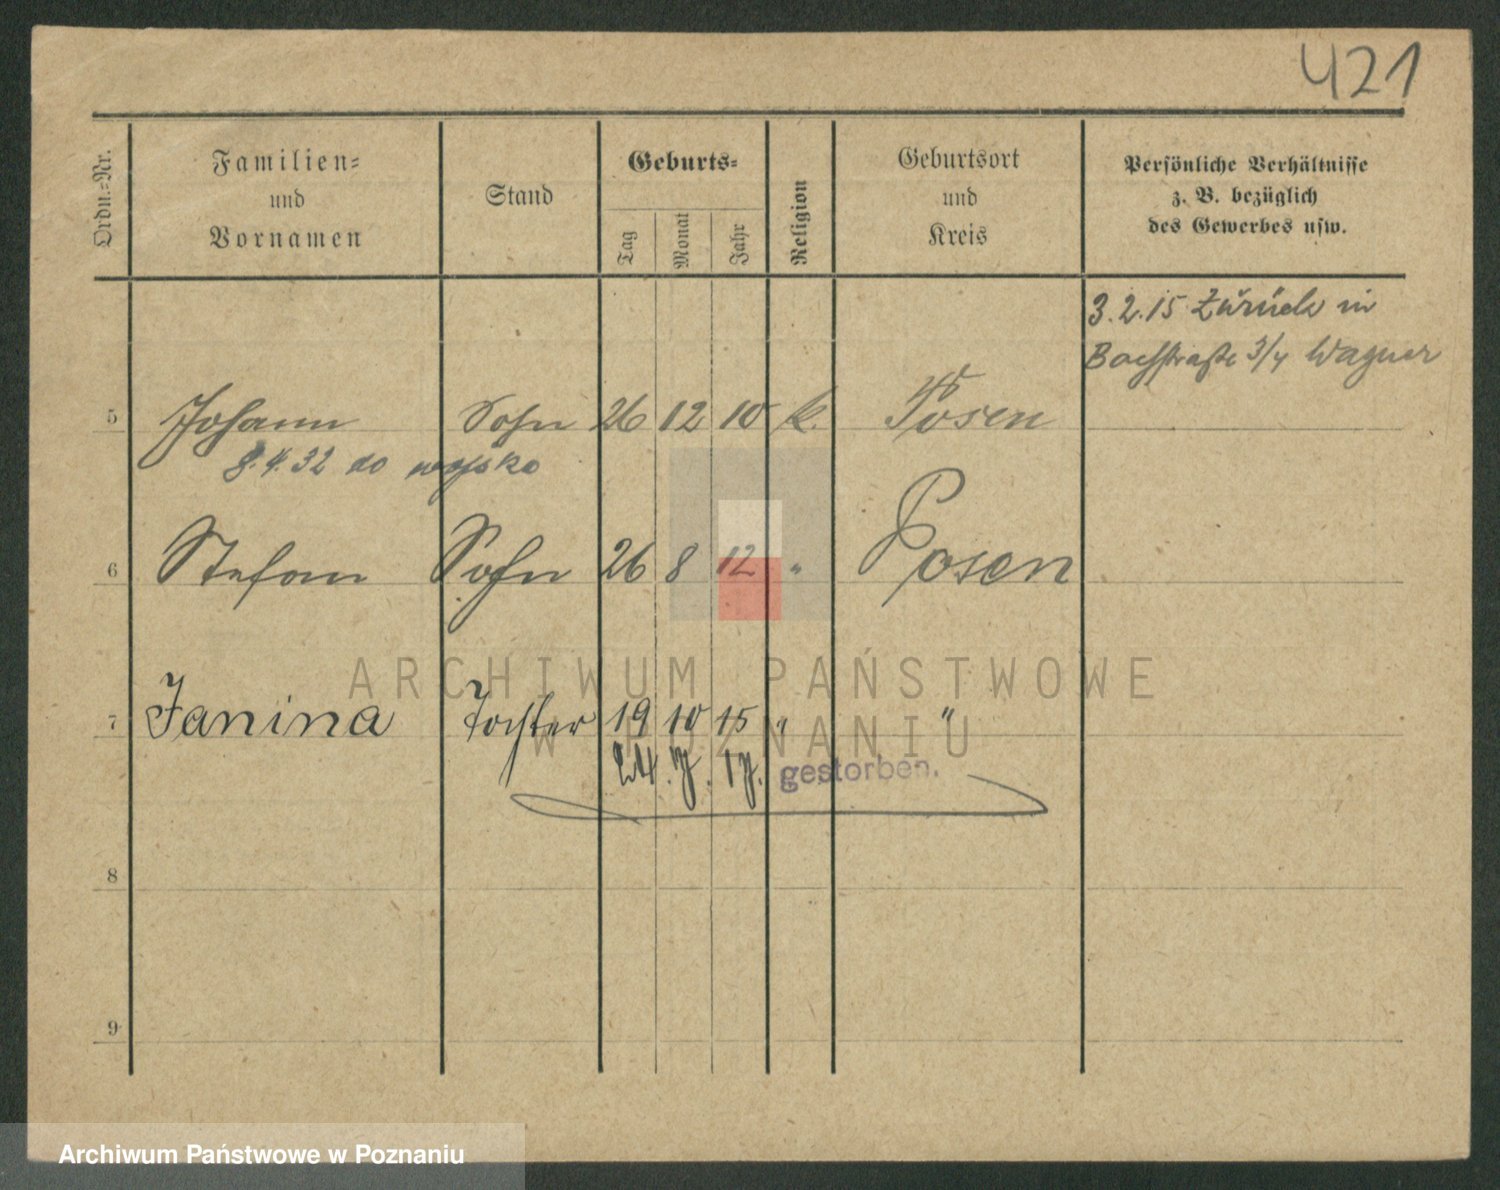 421
Ordn.=Nr.
Familien=
und
Vornamen
Stand
Geburts=
Tag
Monat
Jahr
Religion
Geburtsort
und
Kreis
Persönliche Verhältnisse
z. B. bezüglich
des Gewerbes usw.
3.2.15 Zurück in
Bachstraße 3/4 Wagner
5 Johann Sohn 26 12 10 k. Posen
8.4.32 do wojsko
6 Stefan Sohn 26 8 12 " Posen
ARCHIWUM PAŃSTWOWE
7 Janina Tochter 19 10 15 " "
W POZNANIU
24. 7. 17. gestorben.
8
9
Archiwum Państwowe w Poznaniu